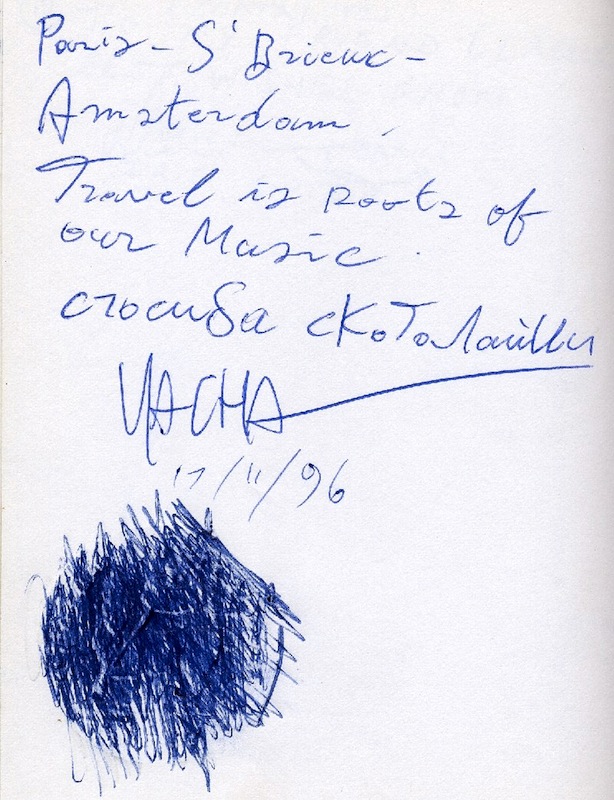 Paris - S' Brieuc -
Amsterdam .
Travel is roots of
our Music .
YACHA
17/11/96